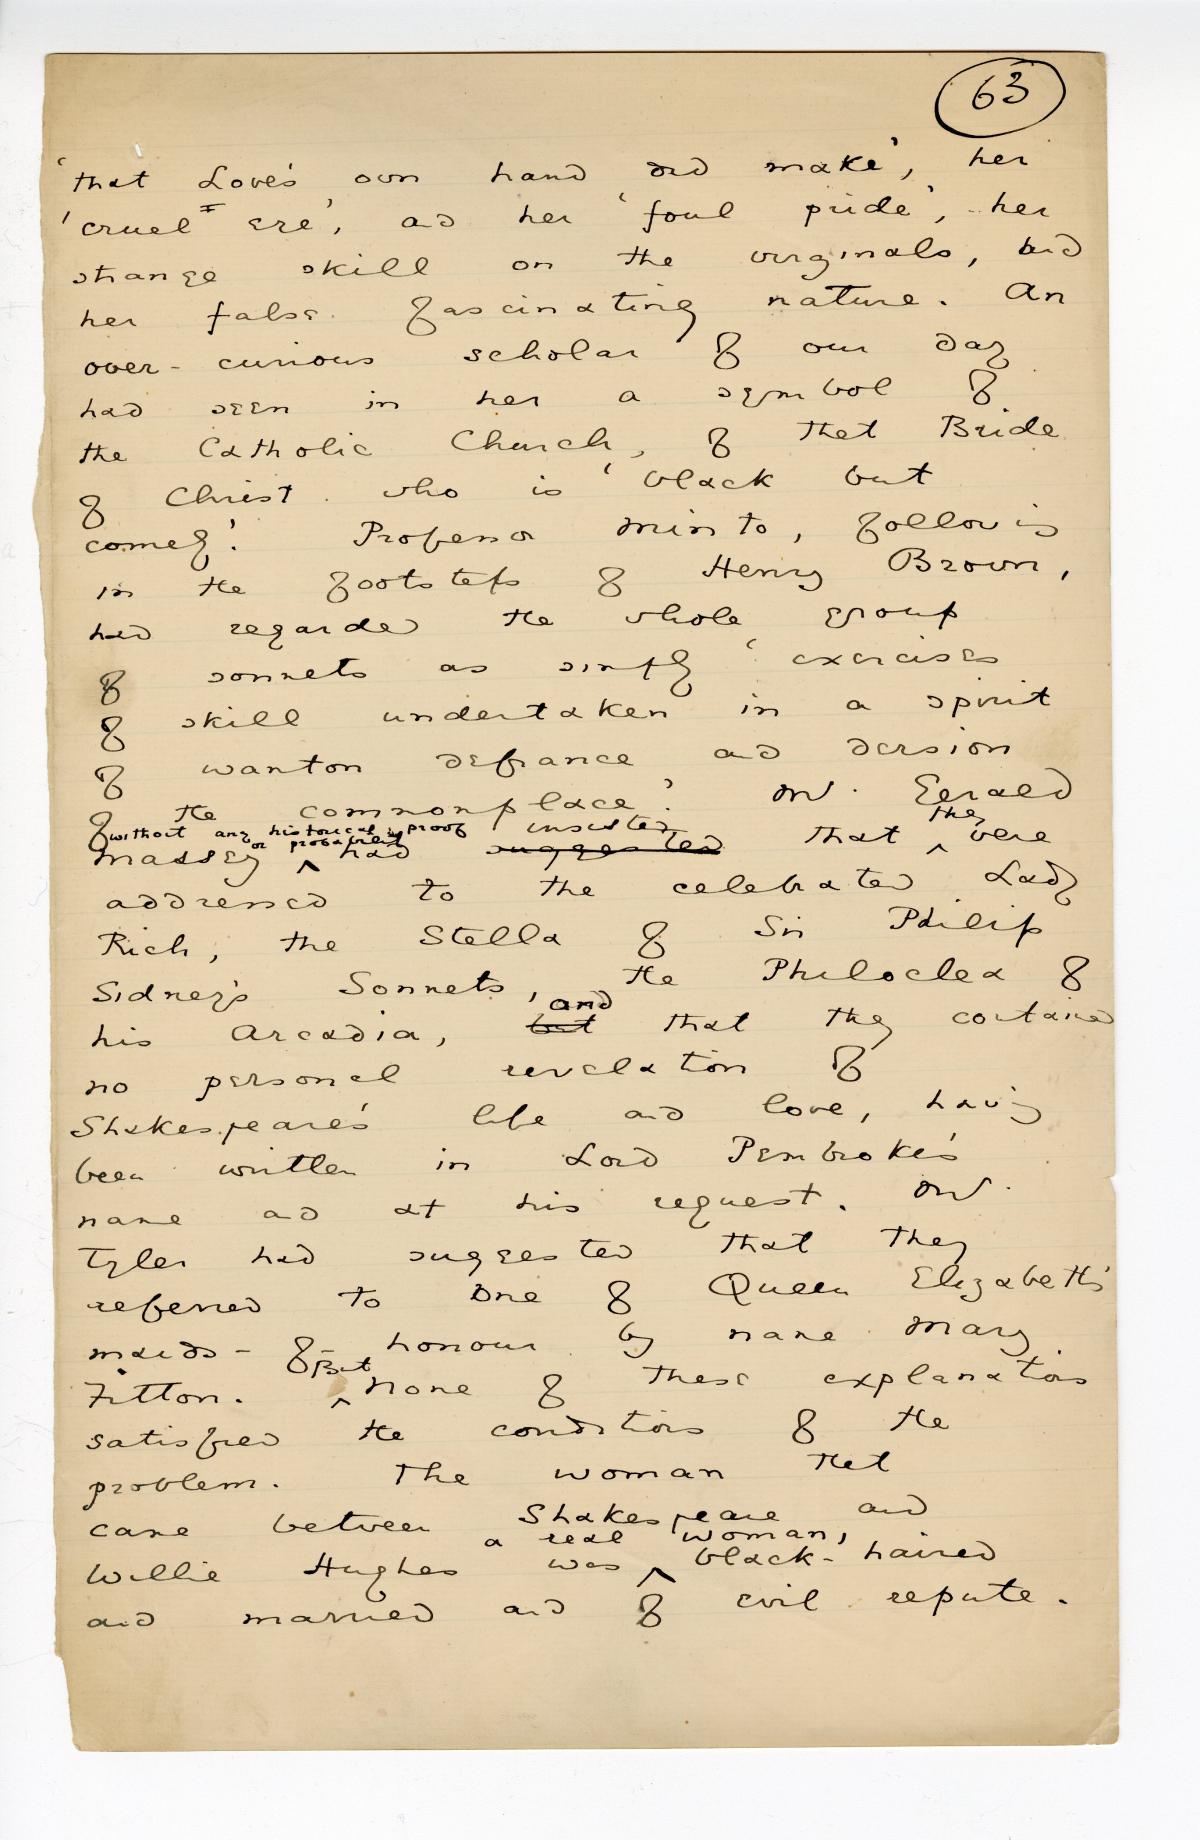 63
'that Love's own hand did make', her
'cruel eye', and her 'foul pride', her
strange skill on the virginals, and
her false fascinating nature. An
over-curious scholar of our day
had seen in her a symbol of
the Catholic Church, of that Bride
of Christ who is 'black but
comely.' Professor Minto, following
in the footsteps of Henry Brown,
had regarded the whole group
of sonnets as simply 'exercises
of skill undertaken in a spirit
of wanton defiance and derision
of the commonplace.' Mr. Gerald
without any historical proof insisted they
or probability
Massey ^ had suggested that ^ were
addressed to the celebrated Lady
Rich, the Stella of Sir Philip
Sidney's Sonnets, the Philoclea of
and
his Arcadia, but that they contained
no personal revelation of
Shakespeare's life and love, having
been written in Lord Pembroke's
name and at his request. Mr.
Tyler had suggested that they
referred to one of Queen Elizabeth's
maids-of-honour by name Mary
But
Fitton. ^ None of these explanations
satisfied the conditions of the
problem. The woman that
came between Shakespeare and
a real woman,
Willie Hughes was ^ black-haired
and married and of evil repute.